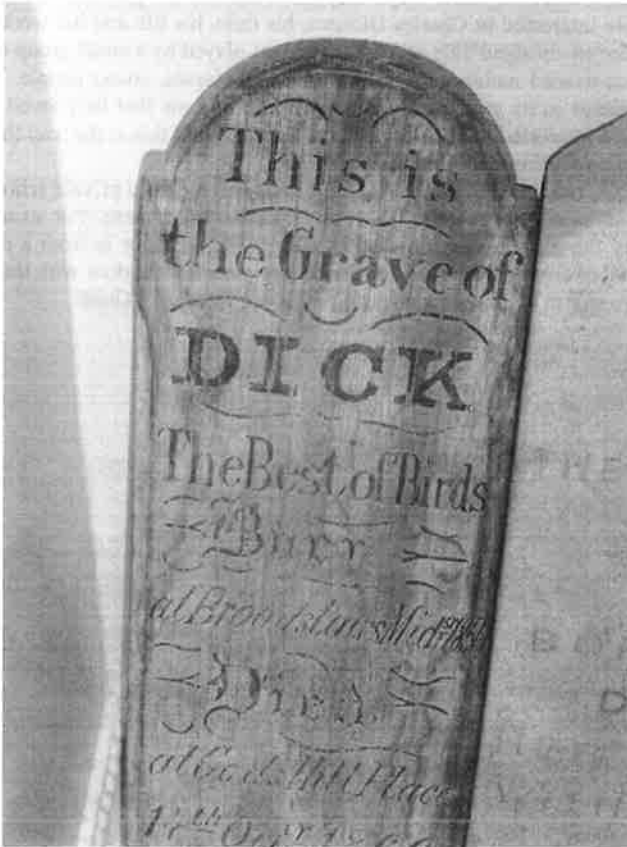 This is
the Grave of
DICK
The Best of Birds
Born
at Broadstairs Mid
Died
at Gad's Hill Place
th Octr